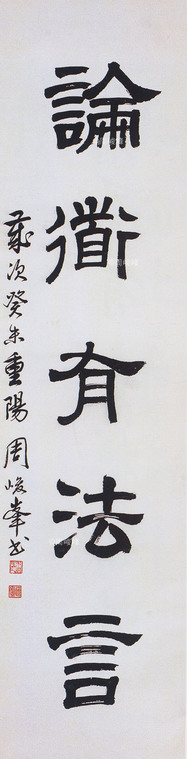 論衟有法言
歲次癸未重陽周峻峯书